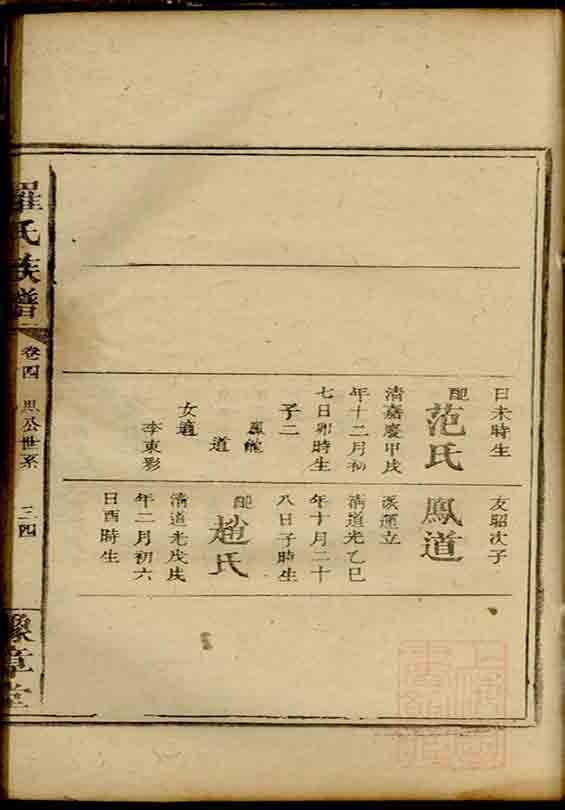 日未時生
配 范氏
清嘉慶甲戌
年十二月初
七日卯時生
子二
鳳龍
道
女適
李東彩
友昭次子
鳳道
派運立
清道光乙巳
年十月二十
八日子時生
配 趙氏
清道光戊戌
年二月初六
日酉時生
羅氏族譜
卷四 思公世系 三四
豫章堂